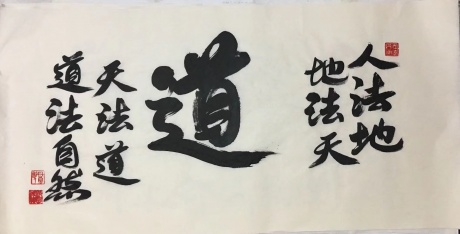 人法地
地法天
道
天法道
道法自然